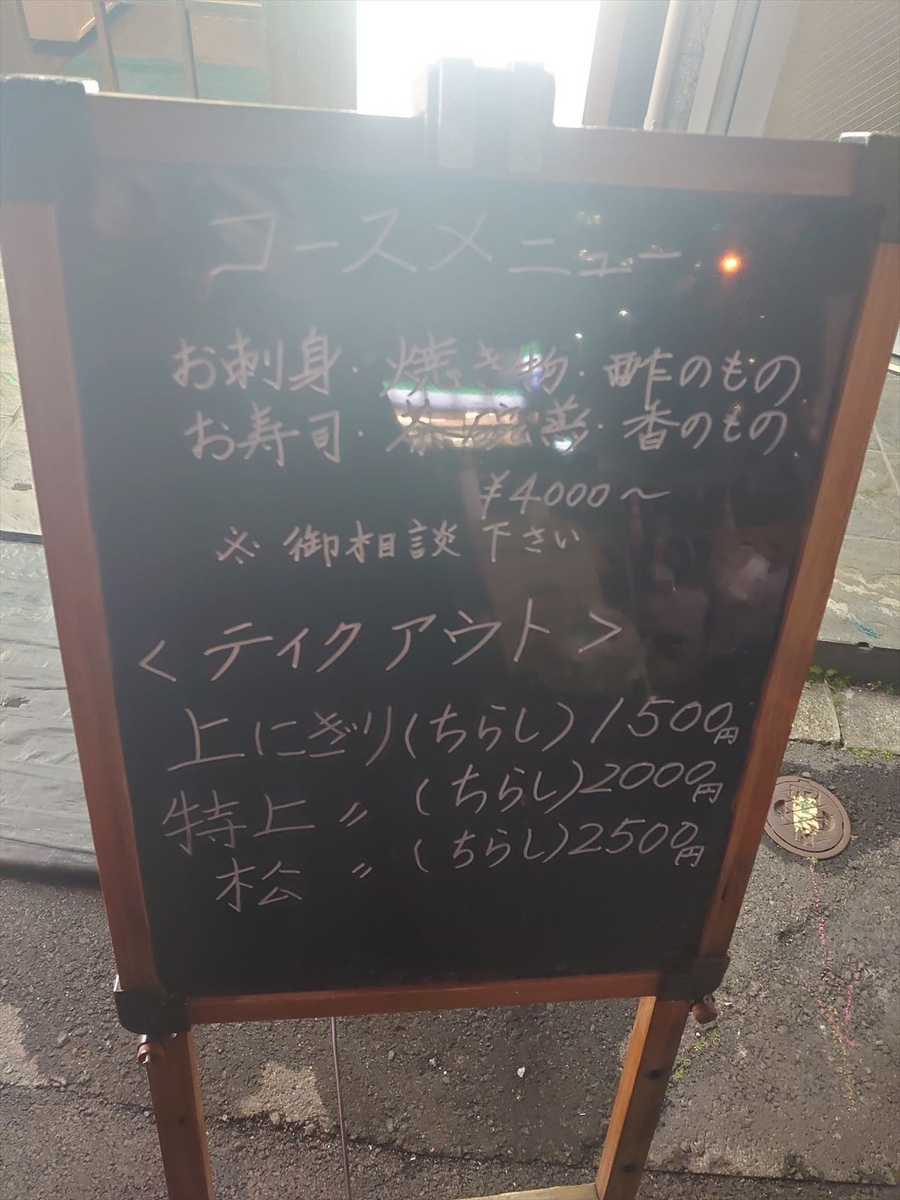 コースメニュー
お刺身・焼き物・酢のもの
お寿司・茶碗蒸・香のもの
¥4000〜
※御相談下さい
<ティクアウト>
上にぎり(ちらし)1500円
特上〃(ちらし)2000円
松〃(ちらし)2500円